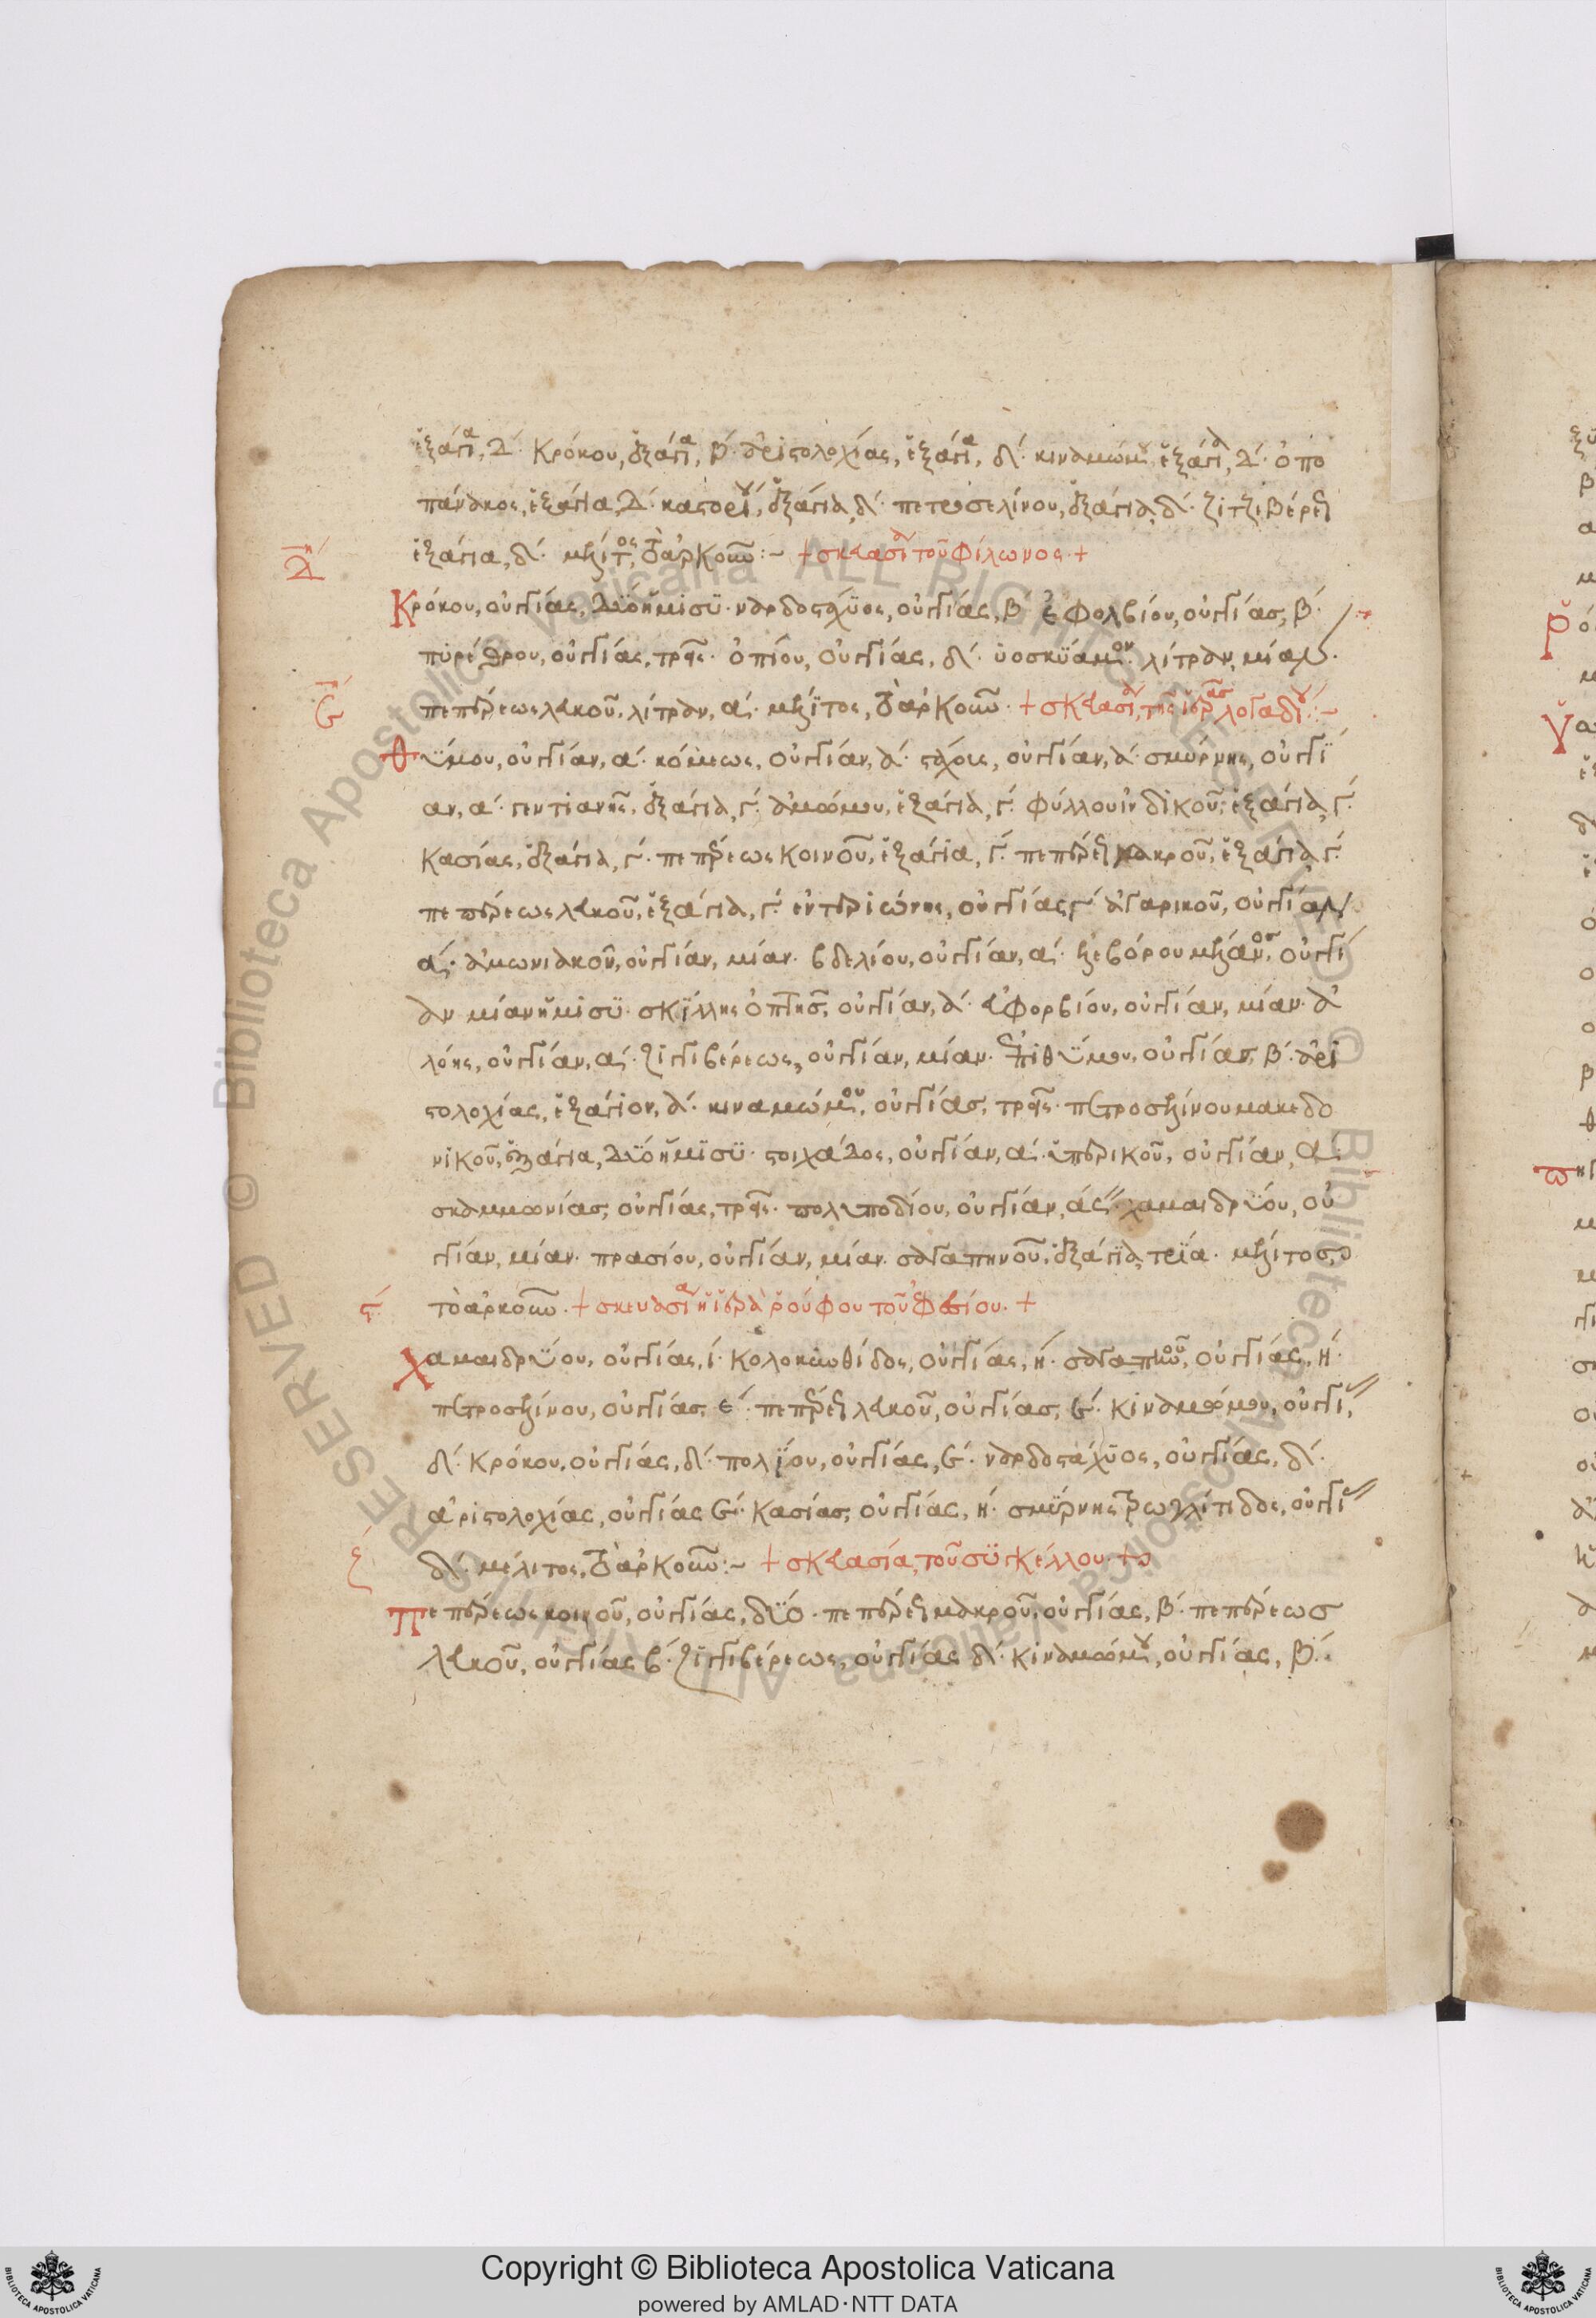 ἐξάγια, δ´. κρόκου, ἐξάγια, β´. ἀριστολοχίας, ἐξάγια, δ´. κιναμώμου ἐξάγια, δ´. ὀπο
πάνακος, ἐξάγια, δ´. καστορίου, ἐξάγια, δ´. πετροσελίνου, ἐξάγια, δ´. ζιτζιβέρεως
ἐξάγια, δ´. μέλιτος, τὸ ἀρκοῦν :~ + σκευασία τοῦ Φίλωνος +
δ´
Κρόκου, οὐγγίας, δύο ἥμισυ. ναρδοστάχυος, οὐγγίας, β´ ἐφολβίου, οὐγγίας, β´.
πυρέθρου, οὐγγίας, τρεῖς. ὀπίου, οὐγγίας, δ´. ὑοσκυάμου. λίτραν, μίαν.
πεπέρεως λευκοῦ, λίτραν, α´. μέλιτος, τὸ ἀρκοῦν. + σκευασία, τῆς ἱερᾶς λογαδίου :~
ε´
Θύμου, οὐγγίαν, α´. κόμεως, οὐγγίαν, α´. στάχους, οὐγγίαν, α´. σμύρνης, οὐγγί
αν, α´. γεντιανῆς, ἐξάγια, γ´. ἀμώμου, ἐξάγια, γ´. φύλλου ἰνδικοῦ, ἐξάγια, γ´.
κασίας, ἐξάγια, γ´. πεπέρεως κοινοῦ, ἐξάγια, γ´. πεπέρεως μακροῦ, ἐξάγια, γ´.
πεπέρεως λευκοῦ, ἐξάγια, γ´. ἐντεριώνης, οὐγγίας, γ´ ἀγαρικοῦ, οὐγγίαν
α´. ἀμωνιακοῦ, οὐγγίαν, μίαν. βδελίου, οὐγγίαν, α´. ἐλεβόρου μέλανος, οὐγγί
αν μίαν ἥμισυ. σκίλλης ὀπτῆς, οὐγγίαν, α´. εὐφορβίου, οὐγγίαν, μίαν. ἀ
λόης, οὐγγίαν, α´. ζιγγιβέρεως, οὐγγίαν, μίαν. ἐπιθύμου, οὐγγίας, β´. ἀρι
στολοχίας, ἐξάγιον, α´. κιναμώμου, οὐγγίας, τρεῖς. πετροσελίνου μακεδο
νικοῦ, ἐξάγια, δύο ἥμισυ. στοιχάδος, οὐγγίαν, α´. ὑπερικοῦ, οὐγγίαν, α´.
σκαμμωνίας, οὐγγίας, τρεῖς. πολυποδίου, οὐγγίαν, α´ς´´. χαμαιδρύου, οὐγ
γίαν, μίαν. πρασίου, οὐγγίαν, μίαν. σαγαπηνοῦ, ἐξάγια, τρία. μέλιτος,
τὸ ἀρκοῦν. + σκευασία ἡ ἱερὰ Ῥούφου τοῦ Ἐφεσίου. +
ς´
Χαμαιδρύου, οὐγγίας, ι´. κολοκυνθίδος, οὐγγίας, η´. σαγαπηνοῦ, οὐγγίας, η´.
πετροσελίνου, οὐγγίας, ε´. πεπέρεως λευκοῦ, οὐγγίας, ε´. κιναμώμου, οὐγγί,
δ´. κρόκου, οὐγγίας, δ´. πολίου, οὐγγίας, ε´. ναρδοστάχυος, οὐγγίας, δ´.
ἀριστολοχίας, οὐγγίας ε´. κασίας, οὐγγίας, η´. σμύρνης τρωγλίτιδος, οὐγγί
δ´. μέλιτος, τὸ ἀρκοῦν :~ + σκευασία, τοῦ συγκέλλου +
ζ´
Πεπέρεως κοινοῦ, οὐγγίας, δύο. πεπέρεως μακροῦ, οὐγγίας, β´. πεπέρεως
λευκοῦ, οὐγγίας β´. ζιγγιβέρεως, οὐγγίας δ´. κιναμώμου, οὐγγίας, β´.
Copyright © Biblioteca Apostolica Vaticana
powered by AMLAD·NTT DATA